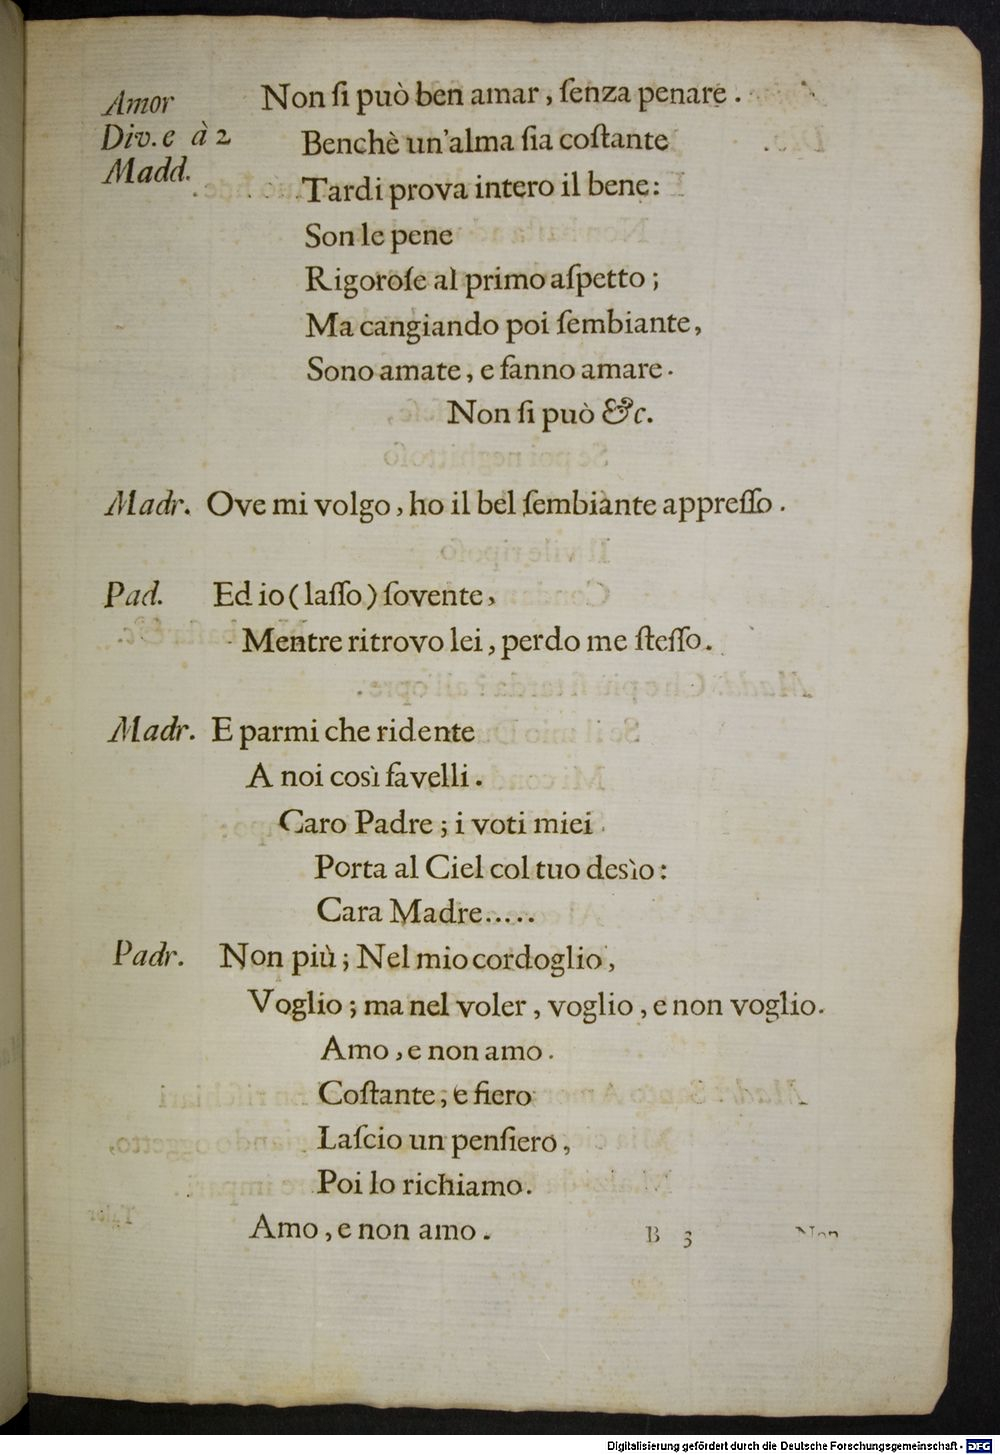 Amor Non ſi può ben amar, ſenza penare.
Div. e à 2 Benchè un'alma ſia coſtante
Madd. Tardi prova intero il bene:
Son le pene
Rigoroſe al primo aſpetto;
Ma cangiando poi ſembiante,
Sono amate, e fanno amare.
Non ſi può &c.
Madr. Ove mi volgo, ho il bel ſembiante appreſſo.
Pad. Ed io (laſſo) ſovente,
Mentre ritrovo lei, perdo me ſteſſo.
Madr. E parmi che ridente
A noi così favelli.
Caro Padre; i voti miei
Porta al Ciel col tuo desìo:
Cara Madre.....
Padr. Non più; Nel mio cordoglio,
Voglio; ma nel voler, voglio, e non voglio.
Amo, e non amo.
Coſtante, e fiero
Laſcio un penſiero,
Poi lo richiamo.
Amo, e non amo.
B 3 Non
Digitalisierung gefördert durch die Deutsche Forschungsgemeinschaft - DFG